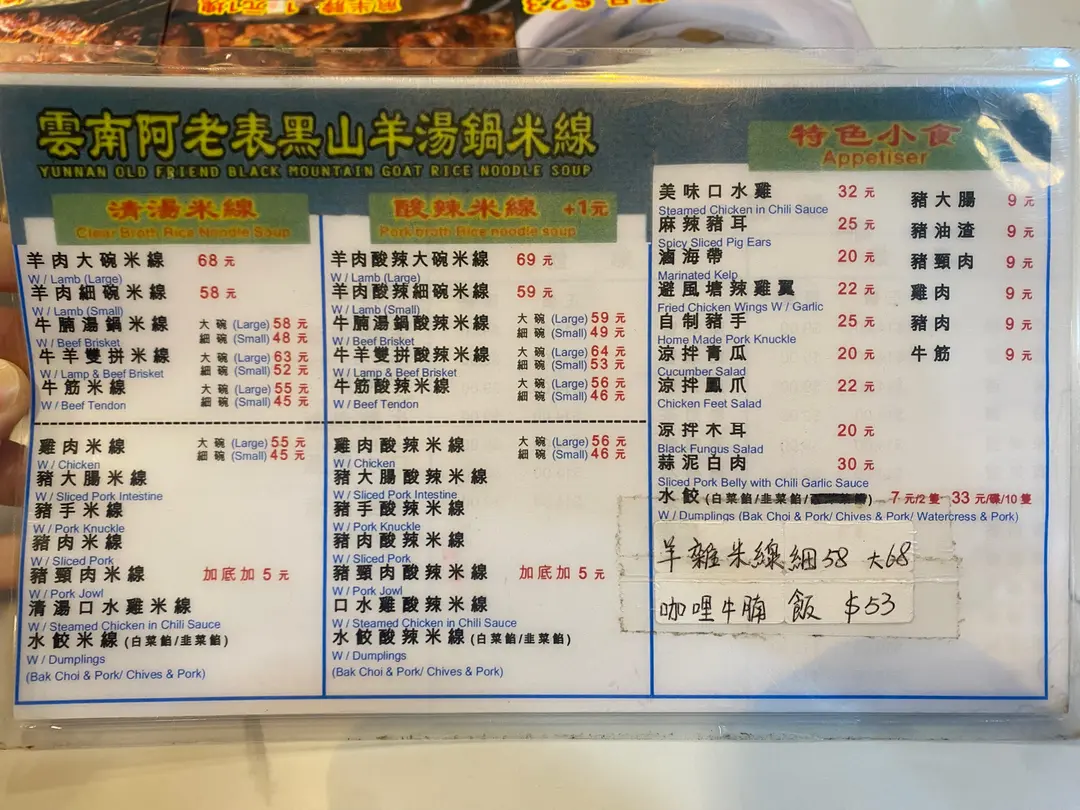 雲南阿老表黑山羊湯鍋米線
YUNNAN OLD FRIEND BLACK MOUNTAIN GOAT RICE NOODLE SOUP
清湯米線
Clear Broth Rice Noodle Soup
羊肉大碗米線 68 元
W / Lamb (Large)
羊肉細碗米線 58 元
W / Lamb (Small)
牛腩湯鍋米線 大碗 (Large) 58 元
W / Beef Brisket 細碗 (Small) 48 元
牛羊雙拼米線 大碗 (Large) 63 元
W / Lamp & Beef Brisket 細碗 (Small) 52 元
牛筋米線 大碗 (Large) 55 元
W / Beef Tendon 細碗 (Small) 45 元
雞肉米線 大碗 (Large) 55 元
W / Chicken 細碗 (Small) 45 元
豬大腸米線
W / Sliced Pork Intestine
豬手米線
W / Pork Knuckle
豬肉米線
W / Sliced Pork
豬頸肉米線 加底加 5 元
W / Pork Jowl
清湯口水雞米線
W / Steamed Chicken in Chili Sauce
水餃米線 (白菜餡/韭菜餡)
W / Dumplings
(Bak Choi & Pork/ Chives & Pork)
酸辣米線 +1元
Pork broth Rice noodle soup
羊肉酸辣大碗米線 69 元
W / Lamb (Large)
羊肉酸辣細碗米線 59 元
W / Lamb (Small)
牛腩湯鍋酸辣米線 大碗 (Large) 59 元
W / Beef Brisket 細碗 (Small) 49 元
牛羊雙拼酸辣米線 大碗 (Large) 64 元
W / Lamp & Beef Brisket 細碗 (Small) 53 元
牛筋酸辣米線 大碗 (Large) 56 元
W / Beef Tendon 細碗 (Small) 46 元
雞肉酸辣米線 大碗 (Large) 56 元
W / Chicken 細碗 (Small) 46 元
豬大腸酸辣米線
W / Sliced Pork Intestine
豬手酸辣米線
W / Pork Knuckle
豬肉酸辣米線
W / Sliced Pork
豬頸肉酸辣米線 加底加 5 元
W / Pork Jowl
口水雞酸辣米線
W / Steamed Chicken in Chili Sauce
水餃酸辣米線 (白菜餡/韭菜餡)
W / Dumplings
(Bak Choi & Pork/ Chives & Pork)
特色小食
Appetiser
美味口水雞 32 元
Steamed Chicken in Chili Sauce
麻辣豬耳 25 元
Spicy Sliced Pig Ears
滷海帶 20 元
Marinated Kelp
避風塘辣雞翼 22 元
Fried Chicken Wings W / Garlic
自制豬手 25 元
Home Made Pork Knuckle
涼拌青瓜 20 元
Cucumber Salad
涼拌鳳爪 22 元
Chicken Feet Salad
涼拌木耳 20 元
Black Fungus Salad
蒜泥白肉 30 元
Sliced Pork Belly with Chili Garlic Sauce
水餃 (白菜餡/韭菜餡/ ) 7 元/2 隻 33 元/碟/10 隻
W / Dumplings (Bak Choi & Pork/ Chives & Pork/ Watercress & Pork)
豬大腸 9 元
豬油渣 9 元
豬頸肉 9 元
雞肉 9 元
豬肉 9 元
牛筋 9 元
羊雜米線細58 大68
咖哩牛腩飯 $53